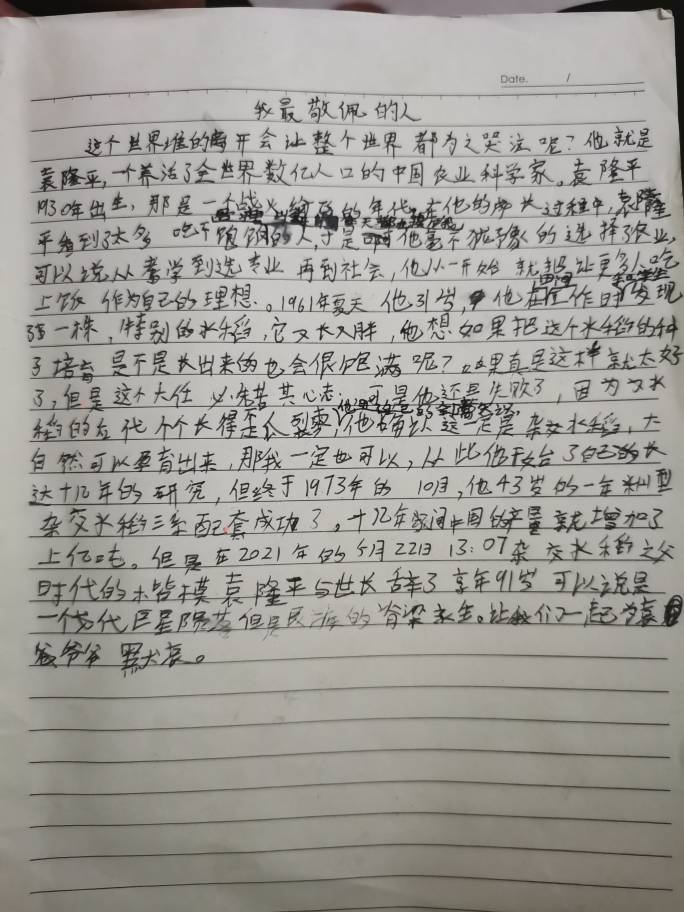 Date. /
我最敬佩的人
这个世界谁的离开会让整个世界都为之哭泣呢？他就是
袁隆平，一个养活了全世界数亿人口的中国农业科学家。袁隆平
1930年出生，那是一个战火纷飞的年代在他的成长过程中，袁隆
平看到了太多吃不饱饭的人，于是他毫不犹豫的选择了农业，
可以说从考学到选专业再到社会，他从一开始就把让更多人吃
上饭作为自己的理想。1961年夏天他31岁，他在田间工作时发现
一株，特别的水稻，它又长又胖，他想如果把这个水稻的种
子培育是不是长出来的也会很饱满呢？如果真是这样就太好
了，但是这个大任必先苦其心志，可是他还是失败了，因为又水
稻的后代个个长得歪瓜裂枣，他确认这一定是杂交水稻，大
自然可以孕育出来，那我一定也可以，从此他开始了自己的长
达十几年的研究，但终于1973年的10月，他43岁的一年籼型
杂交水稻三系配套成功了，十几年间中国的产量就增加了
上亿吨。但是在2021年的5月22日13:07杂交水稻之父
时代的楷模袁隆平与世长辞了享年91岁可以说是
一个时代巨星陨落但是民族的脊梁永生。让我们一起为袁
爷爷默哀。